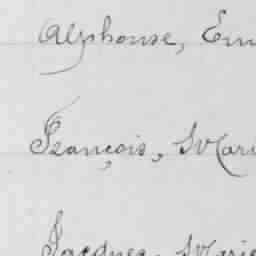 Alphonse, Em
François, Mari
Jacques, Marie